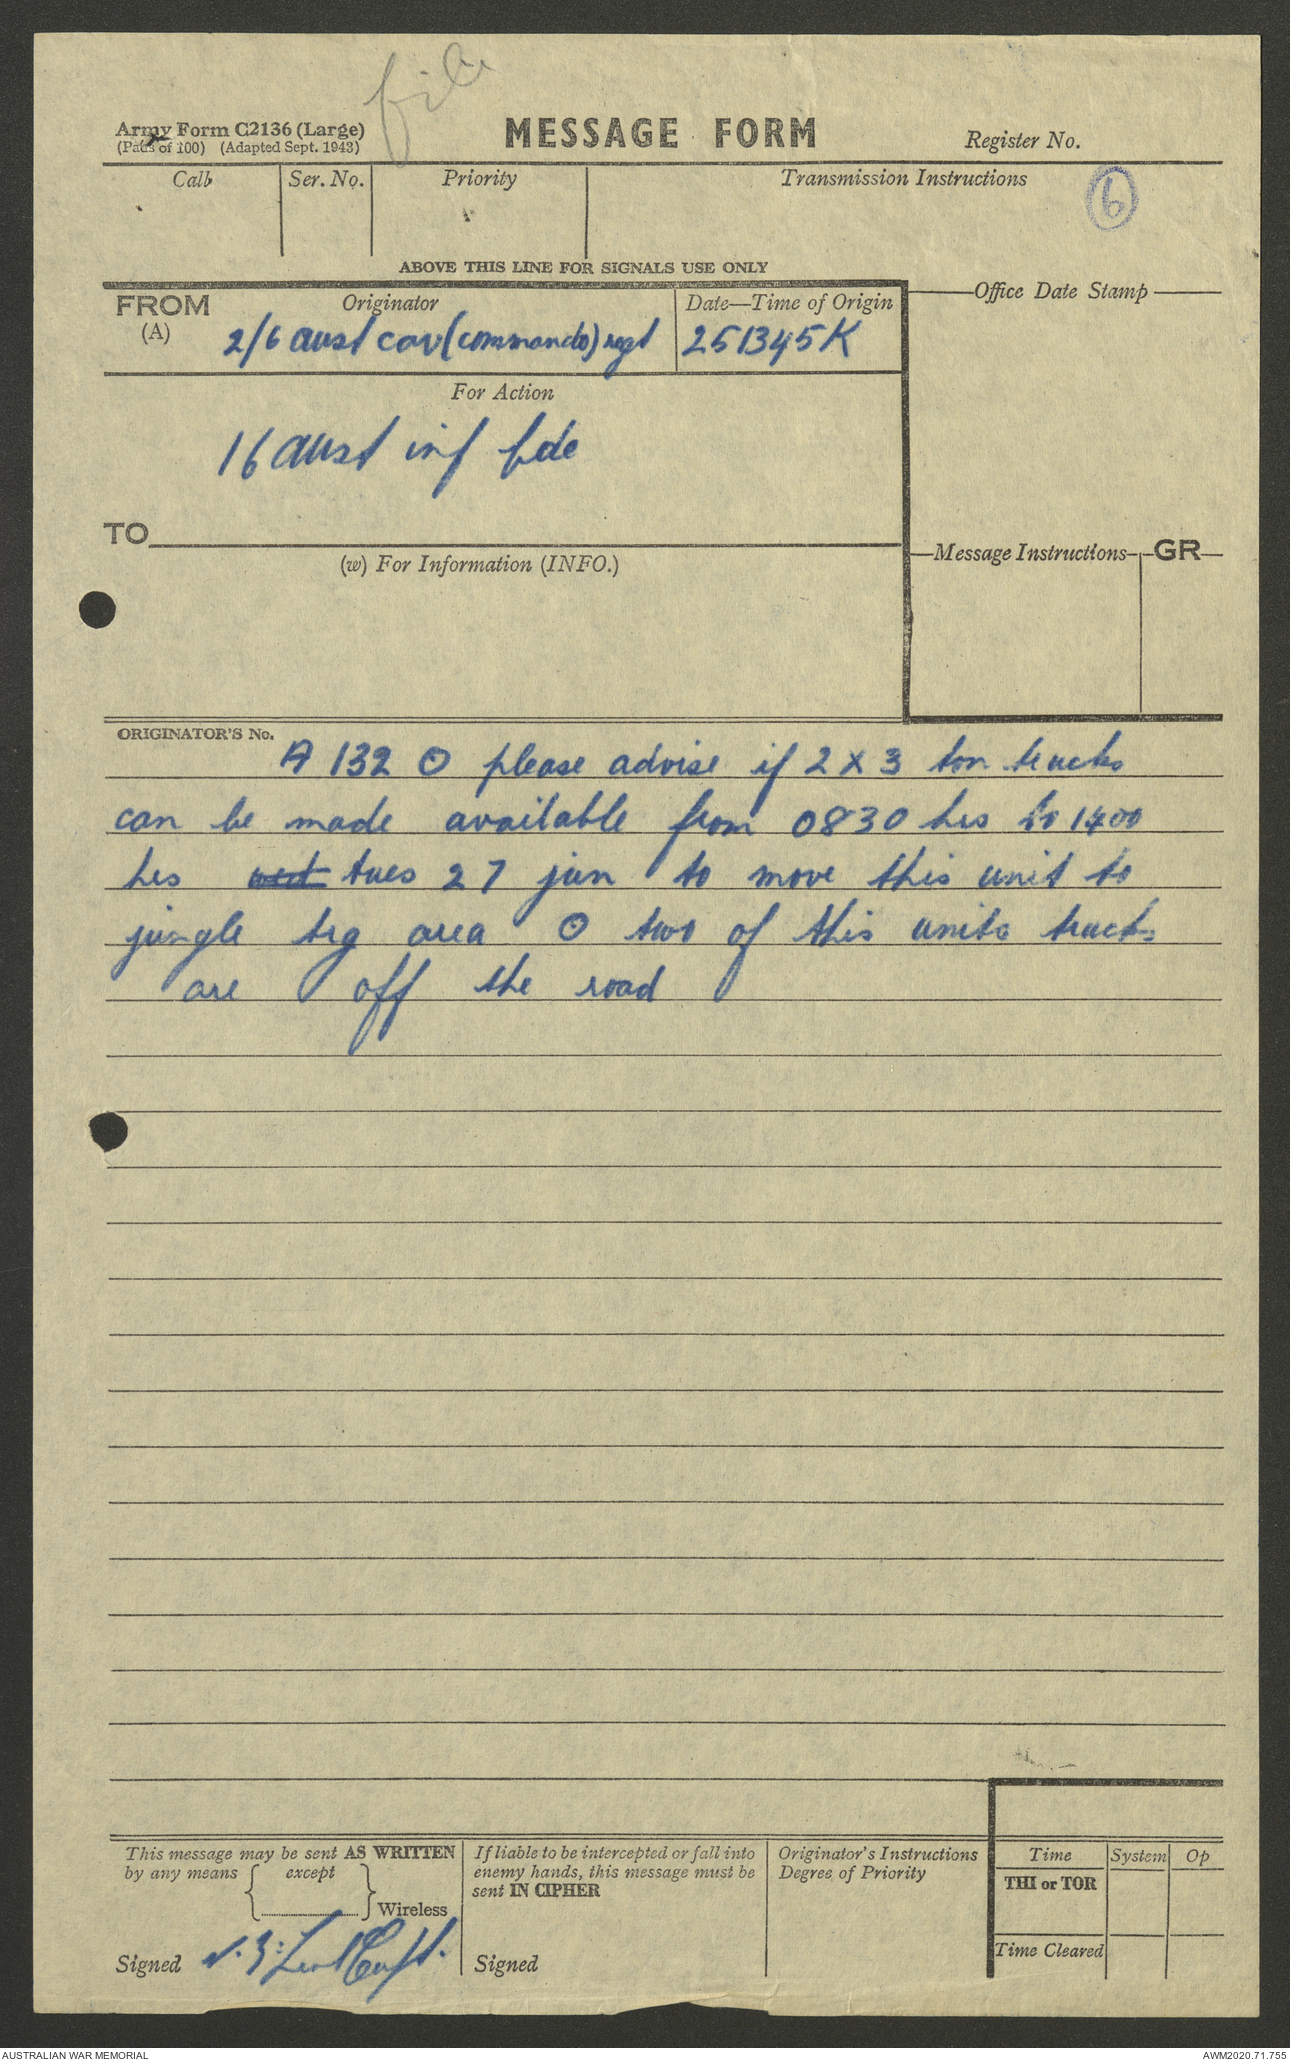 file
Army Form C2136 (Large)
(Pads of 100) (Adapted Sept. 1943)
MESSAGE FORM
Register No.
Call
Ser. No.
Priority
Transmission Instructions
6
ABOVE THIS LINE FOR SIGNALS USE ONLY
FROM
(A)
Originator
Date—Time of Origin
Office Date Stamp
2/6 aust cav (commando) regt
251345K
For Action
16 aust inf bde
TO
(w) For Information (INFO.)
Message Instructions
GR
ORIGINATOR'S No.
A 132 O please advise if 2 x 3 ton trucks
can be made available from 0830 hrs to 1400
hrs wed tues 27 jun to move this unit to
jungle trg area O two of this units trucks
are off the road
This message may be sent AS WRITTEN
by any means { except
} Wireless
Signed
Capt.
If liable to be intercepted or fall into
enemy hands, this message must be
sent IN CIPHER
Signed
Originator's Instructions
Degree of Priority
Time
System
Op
THI or TOR
Time Cleared
AUSTRALIAN WAR MEMORIAL
AWM2020.71.755